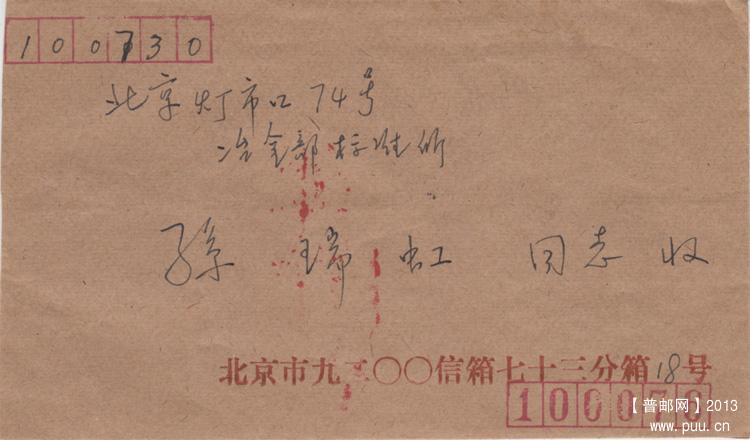 100730
北京灯市口74号
冶金部标准所
孫瑞虹 同志 收
北京市九二〇〇信箱七十三分箱18号
100076
【普邮网】2013
www.puu.cn